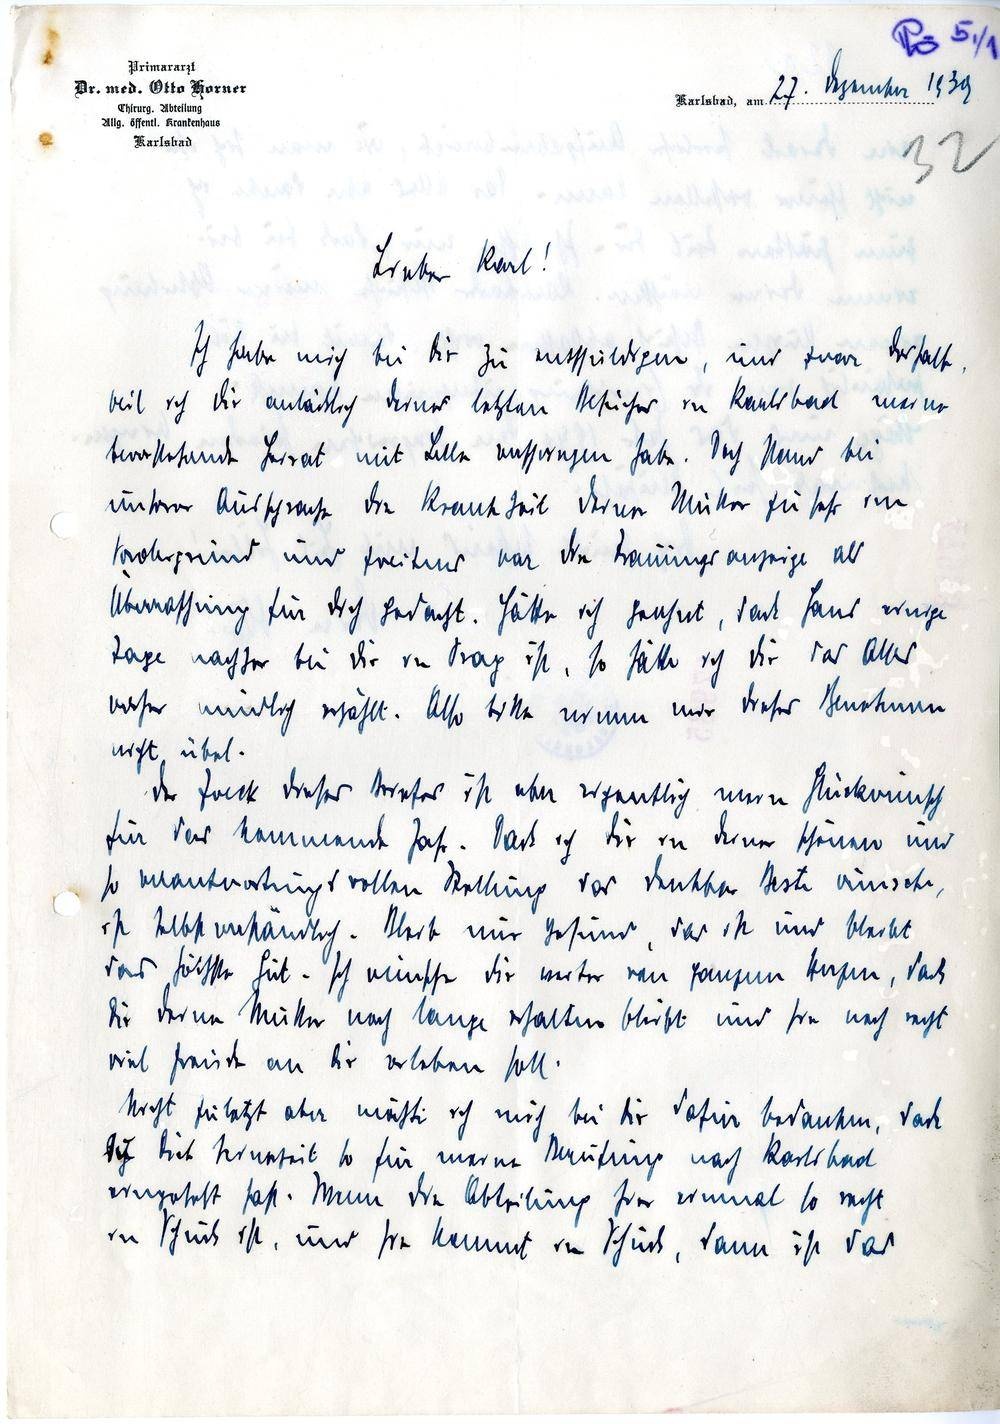 Primararzt
Dr. med. Otto Horner
Chirurg. Abteilung
Allg. öffentl. Krankenhaus
Karlsbad
Karlsbad, am 27. Dezember 1939
5./1
32
Lieber Karl!
Ich habe mich bei Dir zu entschuldigen, und zwar deshalb,
weil ich Dir anläßlich deines letzten Besuches in Karlsbad meine
bevorstehende Heirat mit Lilli verschwiegen habe. Doch stand bei
unserer Aussprache die Krankheit deiner Mutter zu sehr im
Vordergrund und zweitens war die Trauungsanzeige als
Überraschung für Dich gedacht. Hätte ich geahnt, daß Hans einige
Tage nachher bei Dir in Prag ist, so hätte ich Dir das Alles
vorher mündlich erzählt. Also bitte nimm mir dieses Benehmen
nicht übel.
Der Zweck dieses Briefes ist aber eigentlich mein Glückwunsch
für das kommende Jahr. Daß ich Dir in deiner schönen und
so verantwortungsvollen Stellung das denkbar Beste wünsche,
ist selbstverständlich. Bleib mir gesund, das ist und bleibt
das höchste Gut. Ich wünsche Dir weiter von ganzem Herzen, daß
Dir deine Mutter noch lange erhalten bleibt und sie noch recht
viel Freude an Dir erleben soll.
Nicht zuletzt aber möchte ich mich bei Dir dafür bedanken, daß
Du Dich seinerzeit so für meine Berufung nach Karlsbad
eingesetzt hast. Wenn die Abteilung hier einmal so recht
in Schuß ist, und sie kommt in Schuß, dann ist das